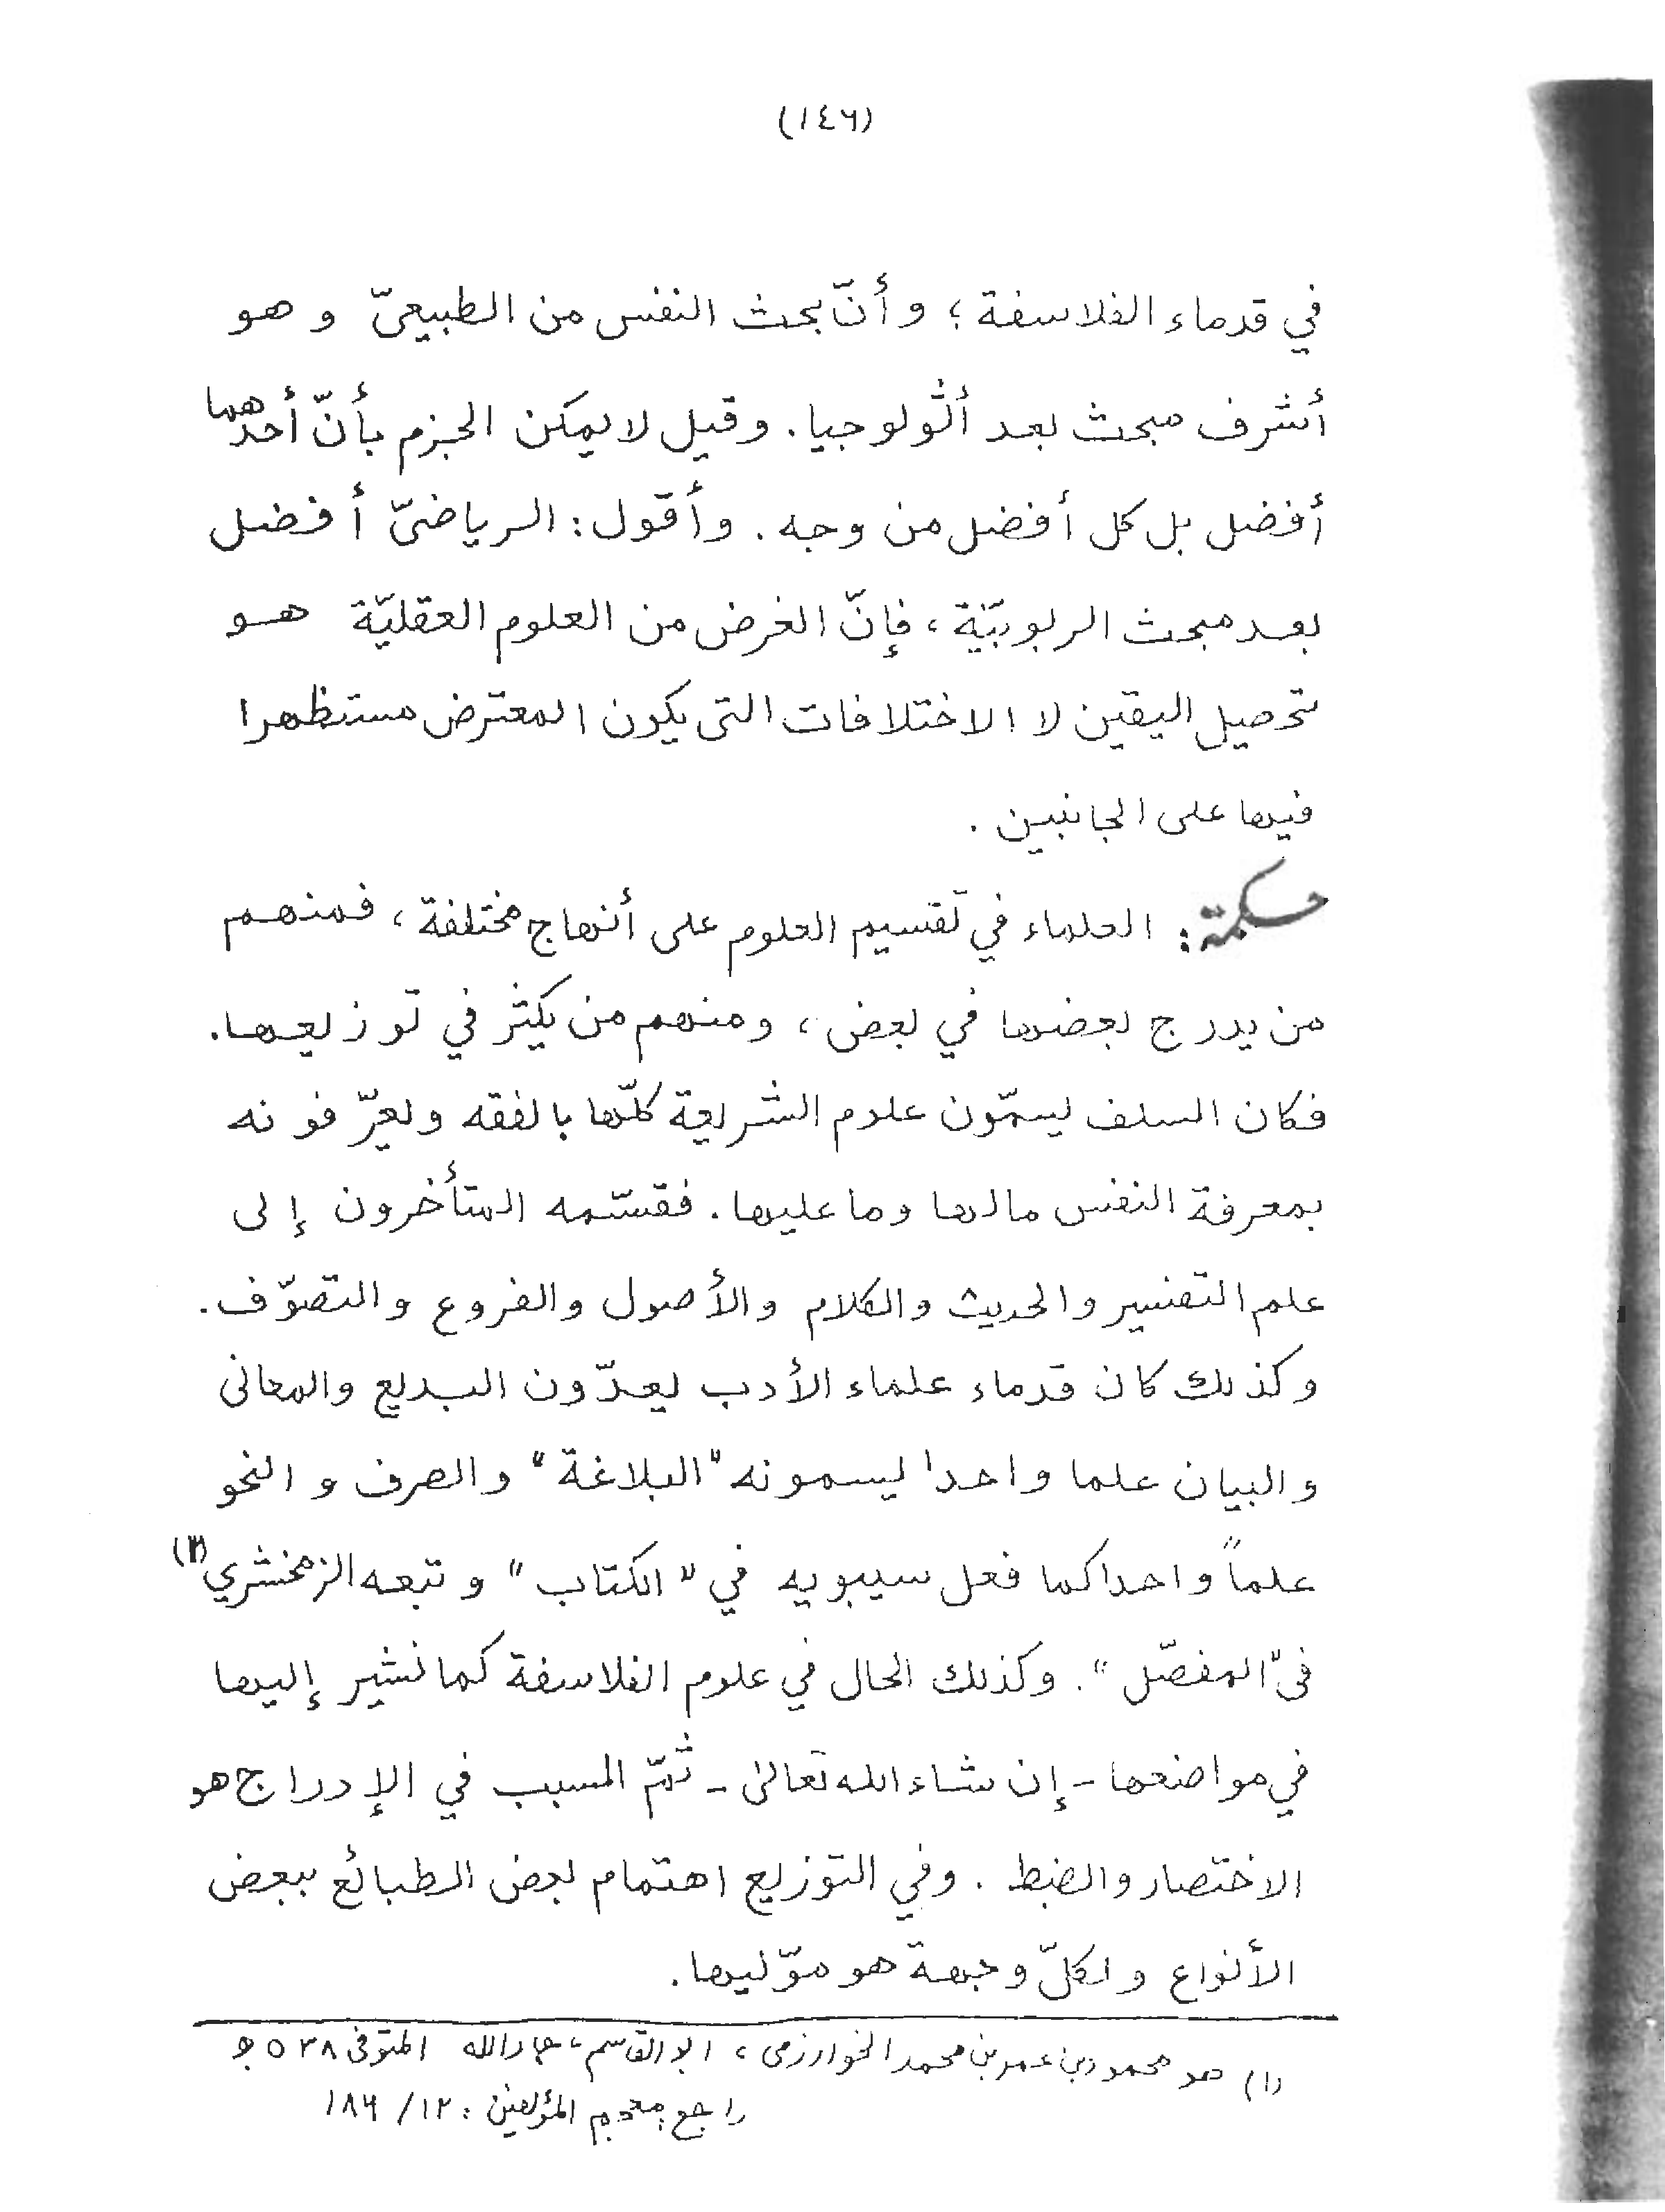 (١٤٦)
في قدماء الفلاسفة ؛ وأنّ بحث النفس من الطبيعىّ و هو
أشرف مبحث بعد أثولوجيا. وقيل لا يمكن الجزم بأنّ أحدهما
أفضل بل كل أفضل من وجه. وأقول: الرياضىّ أفضل
بعد مبحث الربوبيّة ، فإنّ الغرض من العلوم العقليّة هو
تحصيل اليقين لا الاختلافات التى يكون المعترض مستظهرا
فيها على الجانبين .
حكمة: العلماء في تقسيم العلوم على أنهاج مختلفة ، فمنهم
من يدرج بعضها في بعض ، ومنهم من يكثر في توزيعها.
فكان السلف يسمّون علوم الشريعة كلّها بالفقه ويعرّفونه
بمعرفة النفس مالها وما عليها. فقسّمه المتأخرون إلى
علم التفسير والحديث والكلام والأصول والفروع والتصوّف.
وكذلك كان قدماء علماء الأدب يعدّون البديع والمعانى
والبيان علما واحدا يسمونه "البلاغة" والصرف و النحو
علماً واحدا كما فعل سيبويه في "الكتاب" و تبعه الزمخشري (١)
فى "المفصّل". وكذلك الحال في علوم الفلاسفة كما نشير إليها
في مواضعها - إن شاء الله تعالى - ثمّ السبب في الإدراج هو
الاختصار والضبط . وفي التوزيع اهتمام بعض الطبائع ببعض
الأنواع ولكلّ وجهة هو موّليها.
(١) هو محمود بن عمر بن محمد الخوارزمى ، ابو القاسم ، جار الله المتوفى ٥٣٨ ﻫ
راجع معجم المؤلفين : ١٢/ ١٨٦